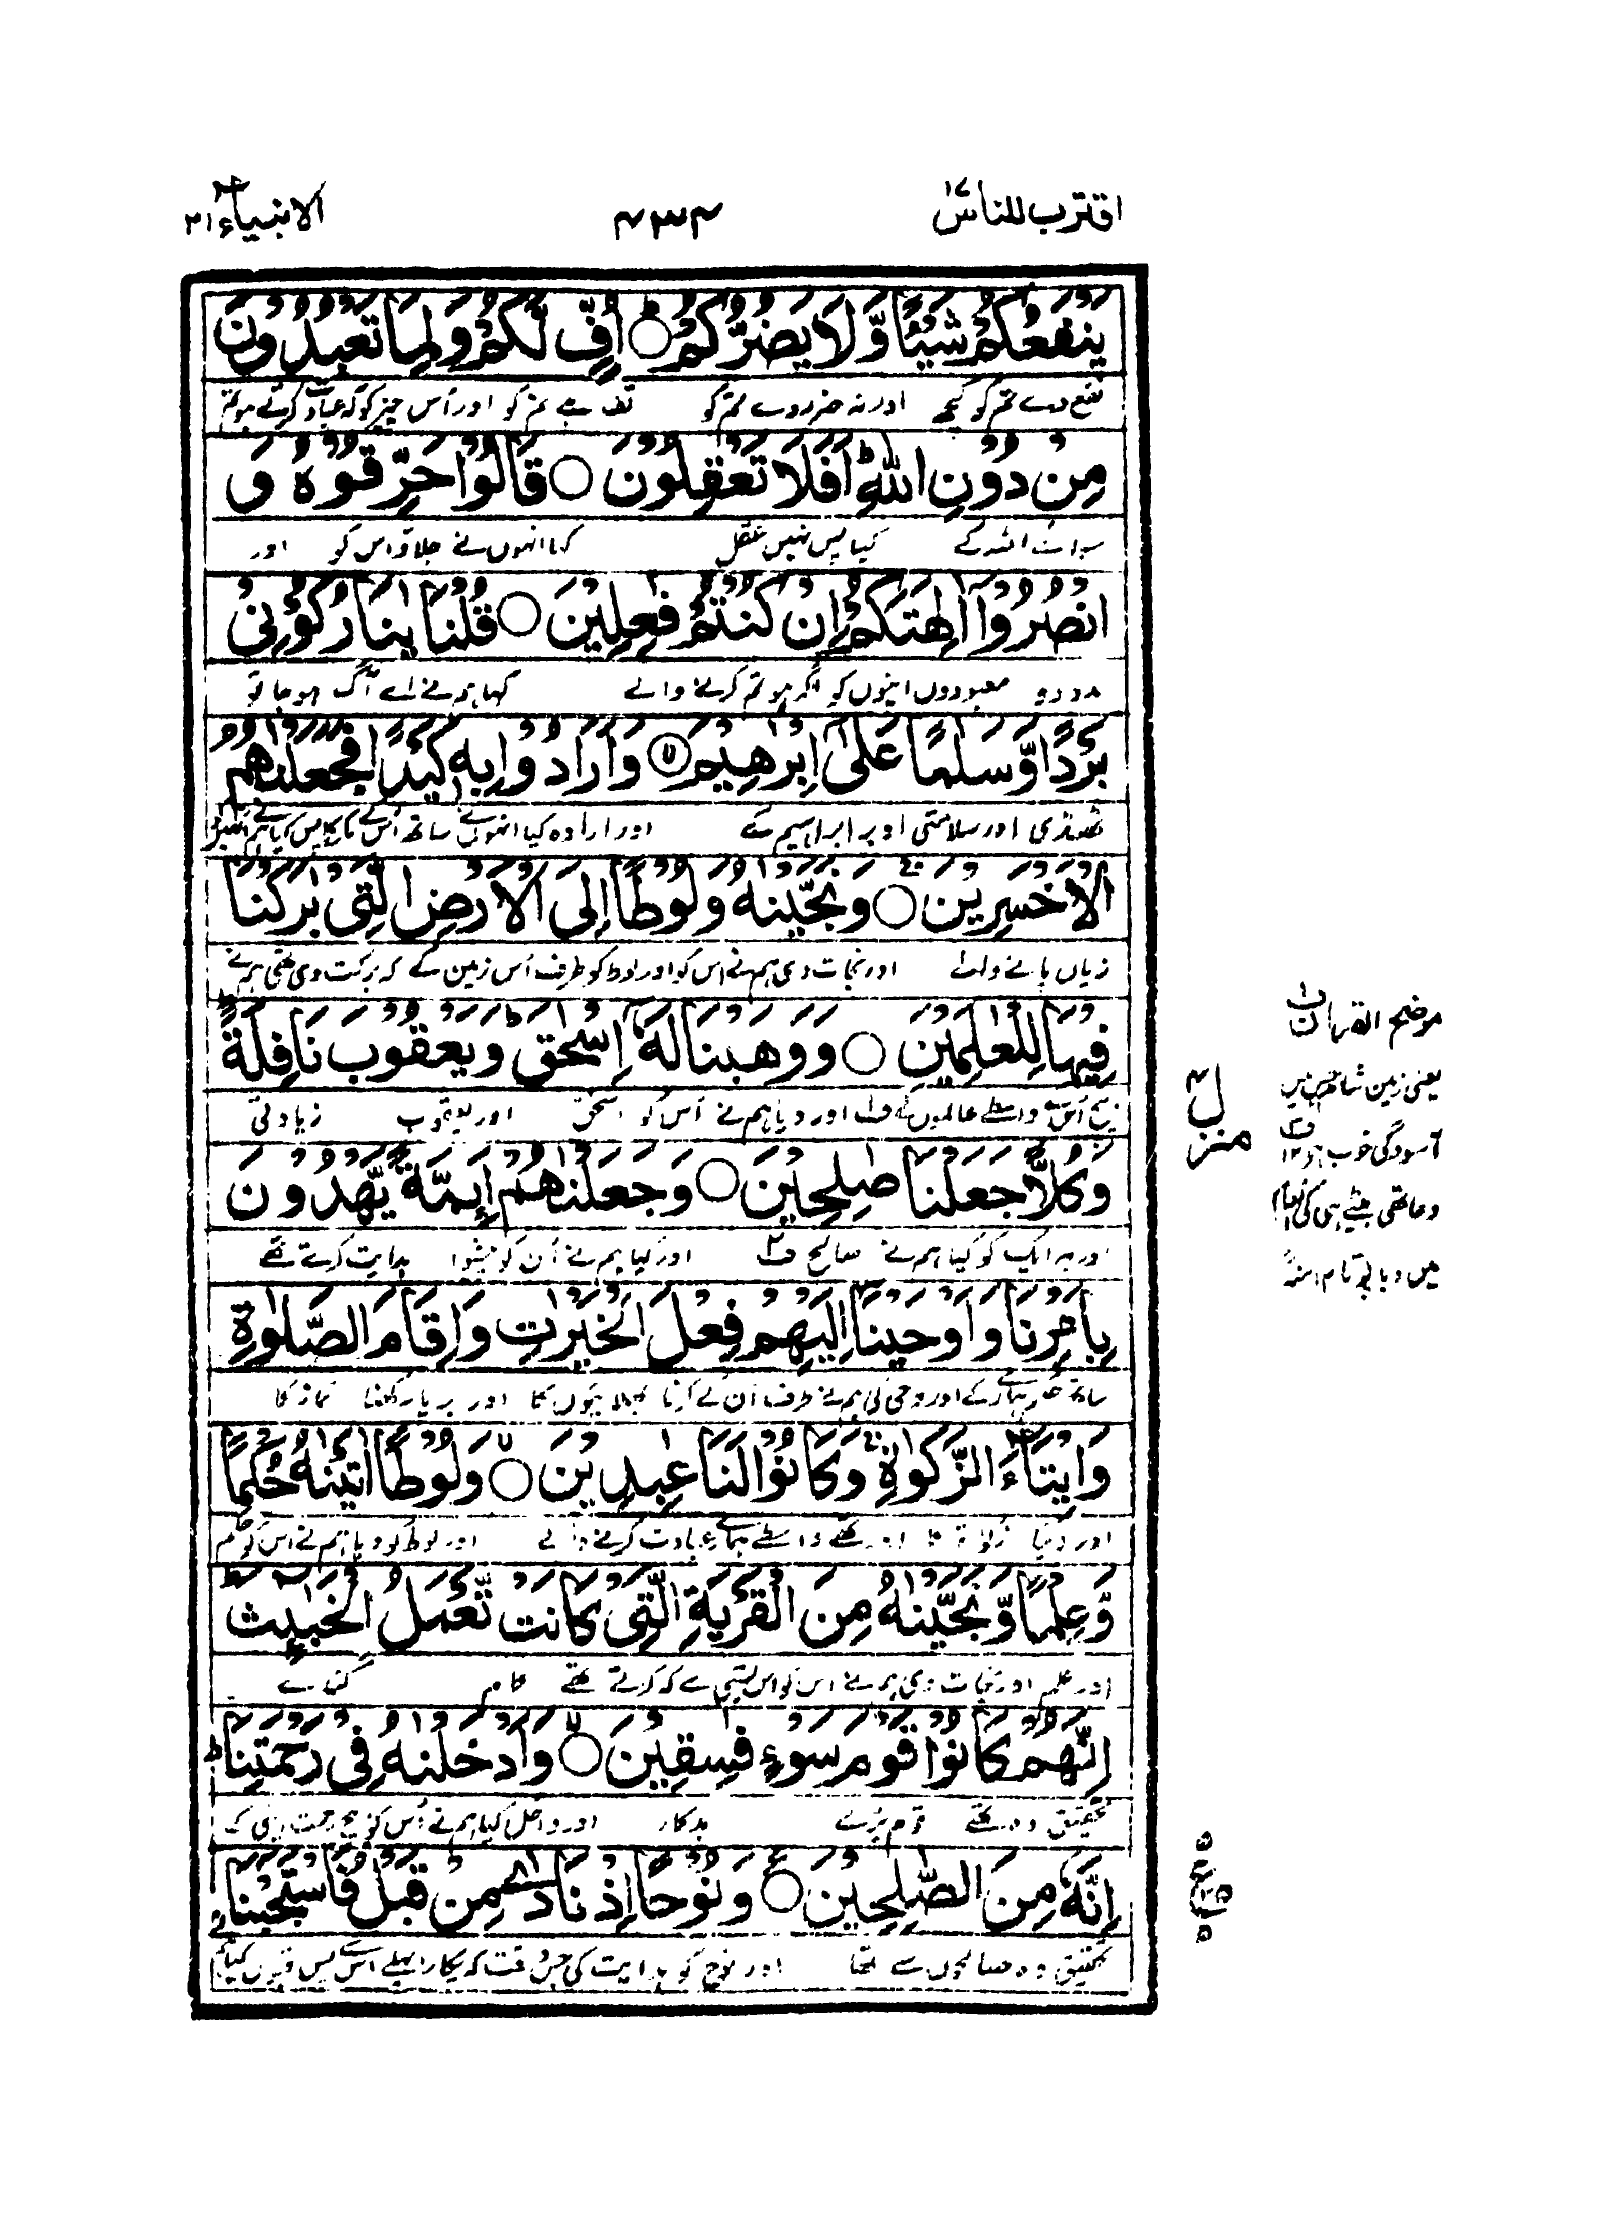 اقترب للناس ١٧
٤٣٤
الانبیاء ٢١
يَنْفَعُكُمْ شَيْئًا وَّلَا يَضُرُّكُمْ ○ اُفٍّ لَّكُمْ وَلِمَا تَعْبُدُوْنَ
نفع دے تم کو کچھ اور نہ ضرر دے تم کو تف ہے تم کو اور اُس چیز کو کہ عبادت کرتے ہو تم
مِنْ دُوْنِ اللّٰهِ ؕ اَفَلَا تَعْقِلُوْنَ ○ قَالُوْا حَرِّقُوْهُ وَ
سوائے اللہ کے کیا پس نہیں عقل کہا انہوں نے جلاؤ اس کو اور
انْصُرُوْٓا اٰلِهَتَكُمْ اِنْ كُنْتُمْ فٰعِلِيْنَ ○ قُلْنَا يٰنَارُ كُوْنِيْ
مدد دو معبودوں اپنوں کو اگر ہو تم کرنے والے کہا ہم نے اے آگ ہو جا تو
بَرْدًا وَّسَلٰمًا عَلٰٓى اِبْرٰهِيْمَ ○ وَاَرَادُوْا بِهٖ كَيْدًا فَجَعَلْنٰهُمُ
ٹھنڈی اور سلامتی اوپر ابراہیم کے اور ارادہ کیا انہوں نے ساتھ اُس کے
الْاَخْسَرِيْنَ ○ وَنَجَّيْنٰهُ وَلُوْطًا اِلَى الْاَرْضِ الَّتِيْ بٰرَكْنَا
زیاں پانے والے اور نجات دی ہم نے اس کو اور لوط کو طرف اُس زمین کے کہ برکت دی تھی ہم نے
فِيْهَا لِلْعٰلَمِيْنَ ○ وَوَهَبْنَا لَهٗٓ اِسْحٰقَ وَيَعْقُوْبَ نَافِلَةً
بیچ اُس کے واسطے عالموں کے ف۱ اور دیا ہم نے اُس کو اسحٰق اور یعقوب زیادتی
وَكُلًّا جَعَلْنَا صٰلِحِيْنَ ○ وَجَعَلْنٰهُمْ اَئِمَّةً يَّهْدُوْنَ
اور ہر ایک کو کیا ہم نے صالح ف۲ اور کیا ہم نے اُن کو پیشوا ہدایت کرتے تھے
بِاَمْرِنَا وَاَوْحَيْنَآ اِلَيْهِمْ فِعْلَ الْخَيْرٰتِ وَاِقَامَ الصَّلٰوةِ
ساتھ حکم ہمارے کے اور وحی کی ہم نے طرف اُن کے کرنا بھلائیوں کا اور برپا رکھنا نماز کا
وَاِيْتَآءَ الزَّكٰوةِ ۚ وَكَانُوْا لَنَا عٰبِدِيْنَ ○ وَلُوْطًا اٰتَيْنٰهُ حُكْمًا
اور دینا زکوٰة کا اور تھے واسطے ہمارے عبادت کرنے والے اور لوط کو دیا ہم نے اس کو حکم
وَّعِلْمًا وَّنَجَّيْنٰهُ مِنَ الْقَرْيَةِ الَّتِيْ كَانَتْ تَّعْمَلُ الْخَبٰٓئِثَ ؕ
اور علم اور نجات دی ہم نے اس کو اس بستی سے کہ کرتے تھے کام گندے
اِنَّهُمْ كَانُوْا قَوْمَ سَوْءٍ فٰسِقِيْنَ ○ وَاَدْخَلْنٰهُ فِيْ رَحْمَتِنَا ؕ
تحقیق وہ تھے قوم بُرے بدکار اور داخل کیا ہم نے اُس کو بیچ رحمت اپنی کے
اِنَّهٗ مِنَ الصّٰلِحِيْنَ ○ وَنُوْحًا اِذْ نَادٰى مِنْ قَبْلُ فَاسْتَجَبْنَا
تحقیق وہ صالحوں سے تھا اور نوح کو ہدایت کی جس وقت کہ پکارا پہلے اُس سے پس قبول کیا
موضح القرآن ف۱
یعنی زمین شام میں
آسودگی خوب ہے ۱۲ ف۲
دعا تھی بیٹے ہی کی
میں دیا پوتا ۱۲ منہ
منزل ٤
ع